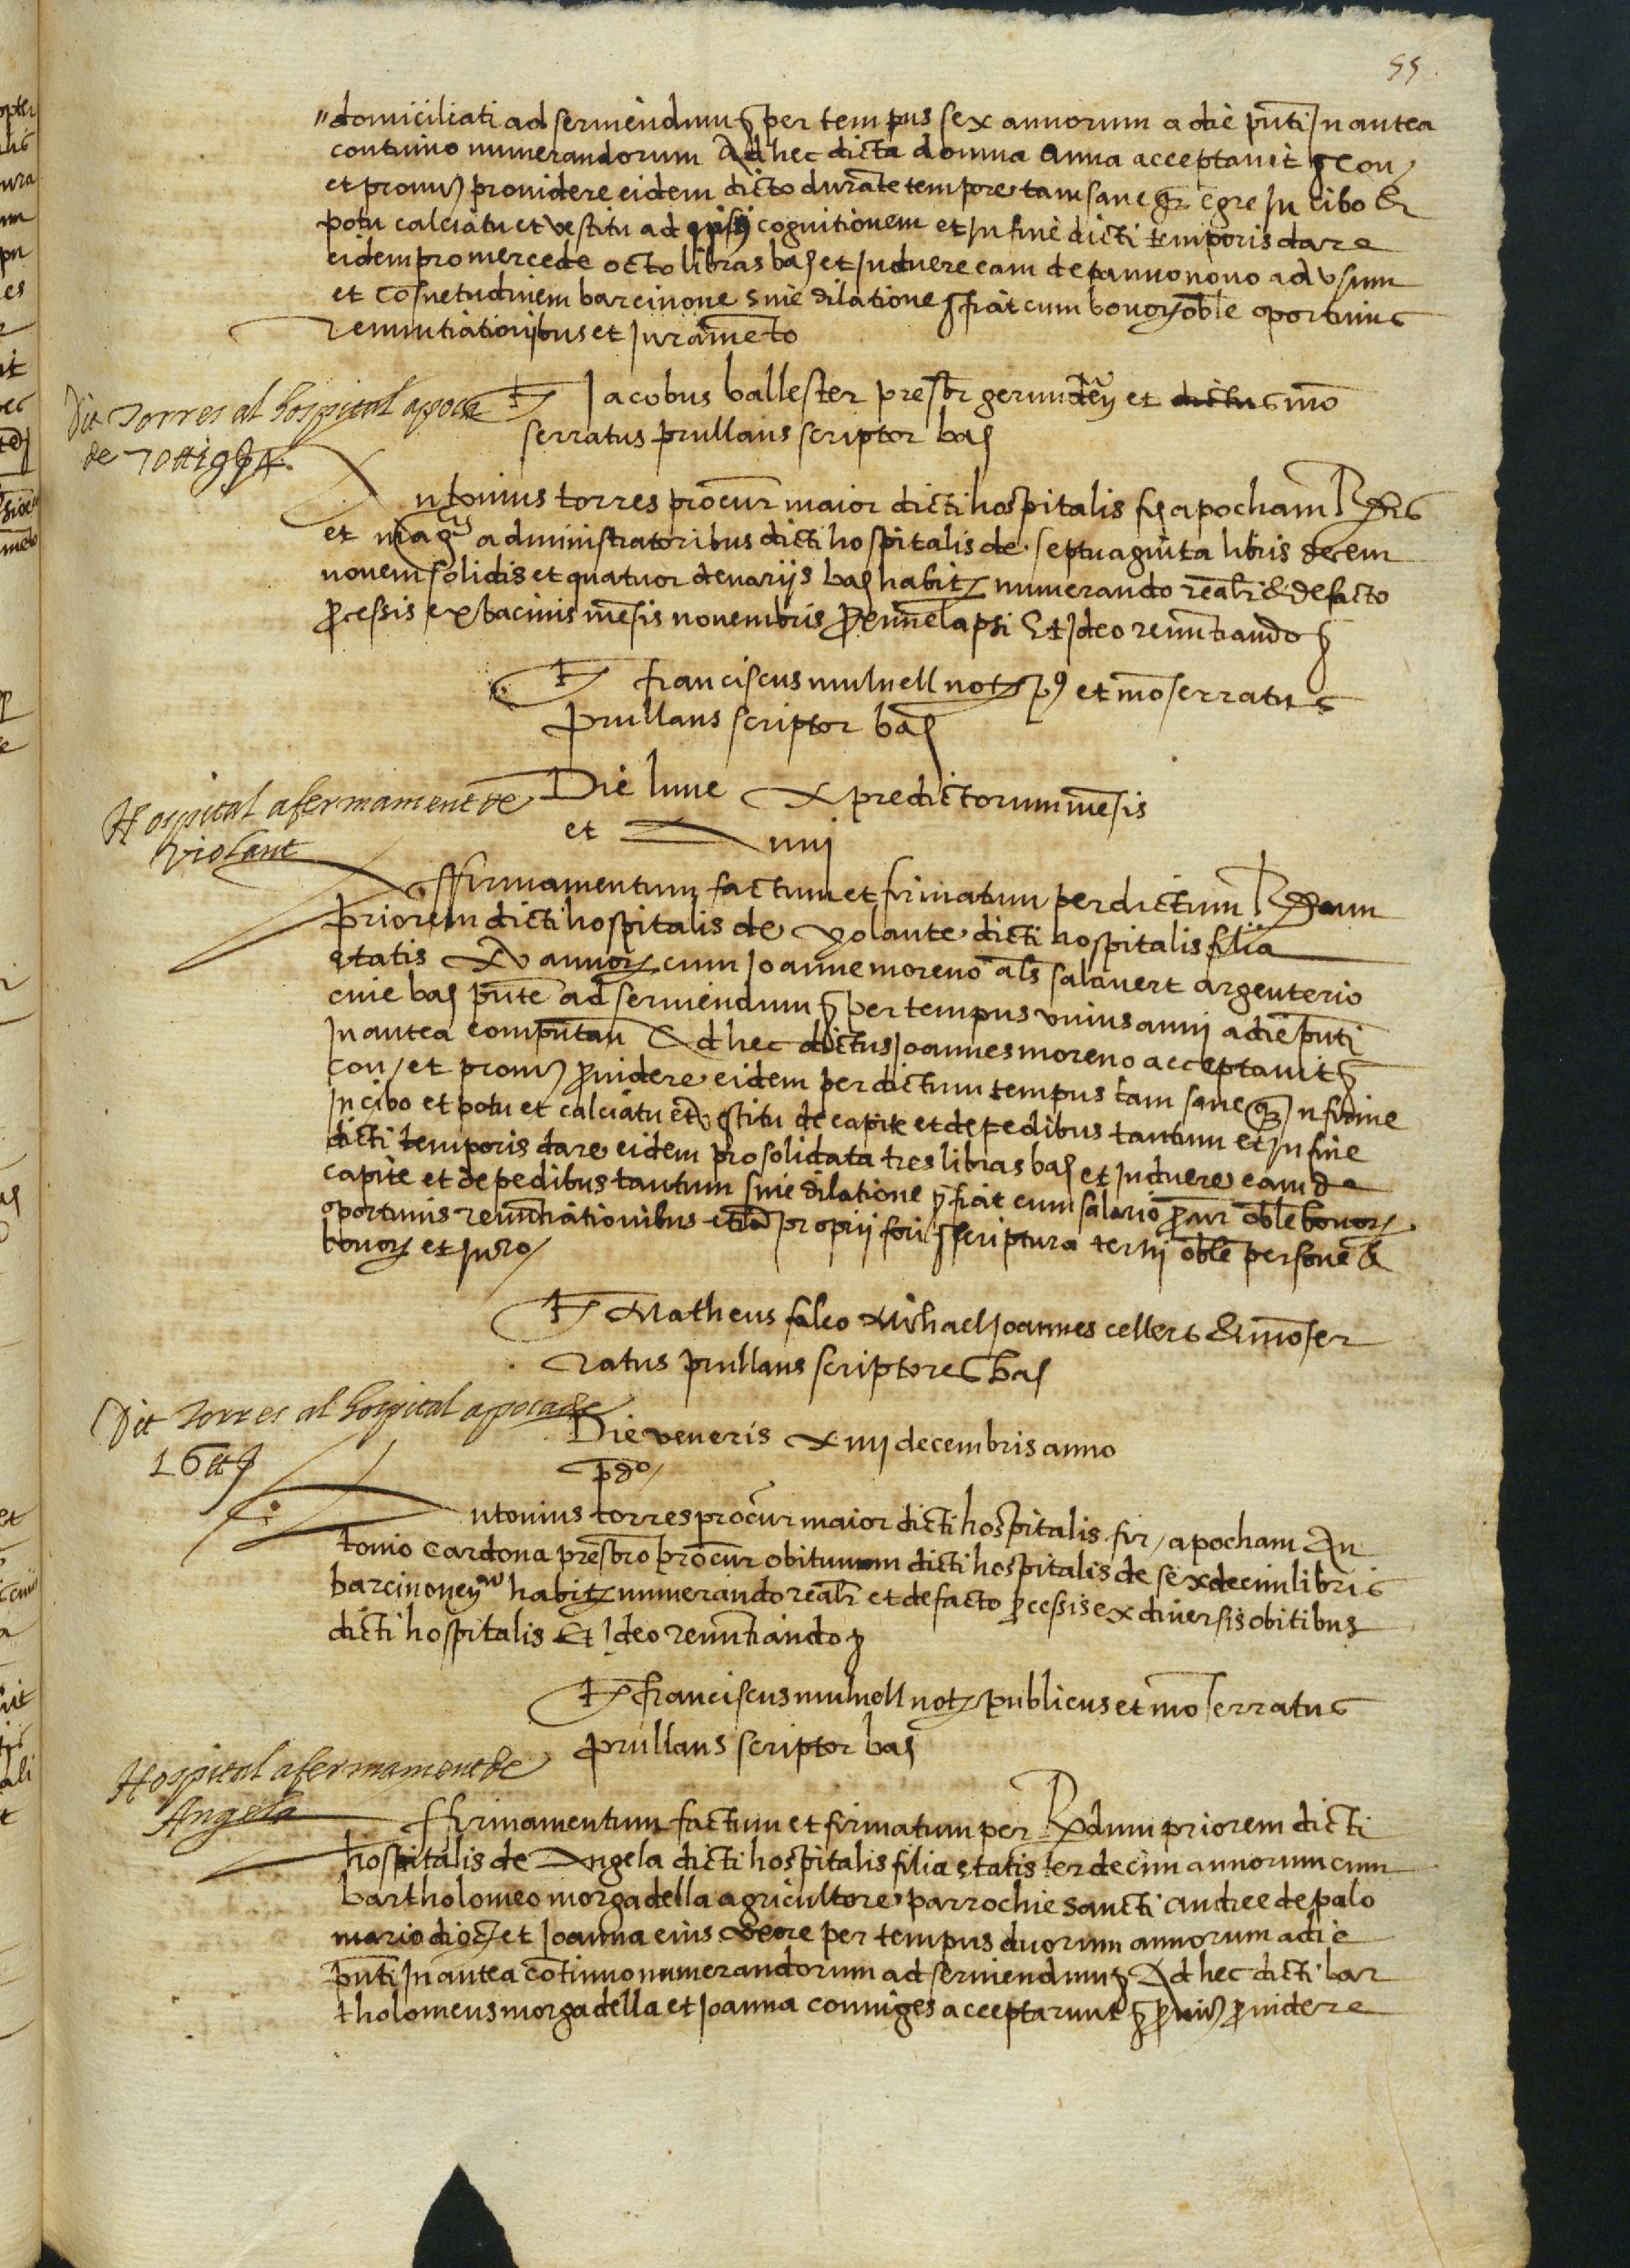 55.
domiciliati ad serviendum per tempus sex annorum a die pñti in antea
continuo numerandorum Ad hec dicta domna Anna acceptavit
et providere eidem dicto durãte tempore tam sane egre in cibo &
potu calciatu et vestitu ad cognitionem et in fine dicti temporis dare
eidem pro mercede octo libras bar et induere eam de panno novo ad usum
et cosuetudinem barcinone sine dilatione fiat cum bonor oble oportunis
renuntiationibus et juramẽto
Dit Torres al hospital apoca
de
Jacobus ballester presbr gerunden et dictus mõ
serratus prullans scriptor bar
Antonius torres procur maior dicti hospitalis apocham
et administratoribus dicti hospitalis de septuaginta libris decem
novem solidis et quatuor denarijs bar habit numerando realr & de facto
processis ex bacinis mẽsis novembris elapsi Et Ideo renũtiando
franciscus mulnell not et mõserratus
prullans scriptor bar
Hospital afermament de
Violant
Die lune x predictorum mẽsis
et anni
Affirmamentum factum et firmatum per dictum Rdum
priorem dicti hospitalis de yolante dicti hospitalis filia
etatis xv annor cum Joanne moreno als salavert argenterio
cive bar pñte ad serviendum per tempus unius anni a die pñti
in antea computan Ad hec dictus Joannes moreno acceptavit
con et providere eidem per dictum tempus tam sane infirme
in cibo et potu et calciatu et vestitu de capite et de pedibus tantum et in fine
dicti temporis dare eidem pro solidata tres libras bar et induere eam de
capite et de pedibus tantum sine dilatione fiat cum salario oble bonor
oportunis renũtiationibus proprii fori scriptura tertij oble persone &
bonor et juro
Matheus falco Michael Joannes cellers & mõser
ratus prullans scriptores bar
Dit Torres al hospital apoca de
16
Die veneris xiiij decembris anno
pdo
Antonius torres procur maior dicti hospitalis fir apocham An
tonio cardona presbro procur obituum dicti hospitalis de sexdecim libris
barcinonen habit numerando realr et de facto pcessis ex diversis obitibus
dicti hospitalis Et Ideo renũtiando
franciscus mulnell not publicus et mõserratus
prullans scriptor bar
Hospital afermament de
Angela
Affirmamentum factum et firmatum per Rdum priorem dicti
hospitalis de Angela dicti hospitalis filia etatis terdecim annorum cum
bartholomeo morgadella agricultore parrochie sancti andree de palo
mario dioc et Joanna eius uxore per tempus duorum annorum a die
pñti in antea cõtinuo numerandorum ad serviendum Ad hec dicti bar
tholomeus morgadella et Joanna coniuges acceptarunt providere